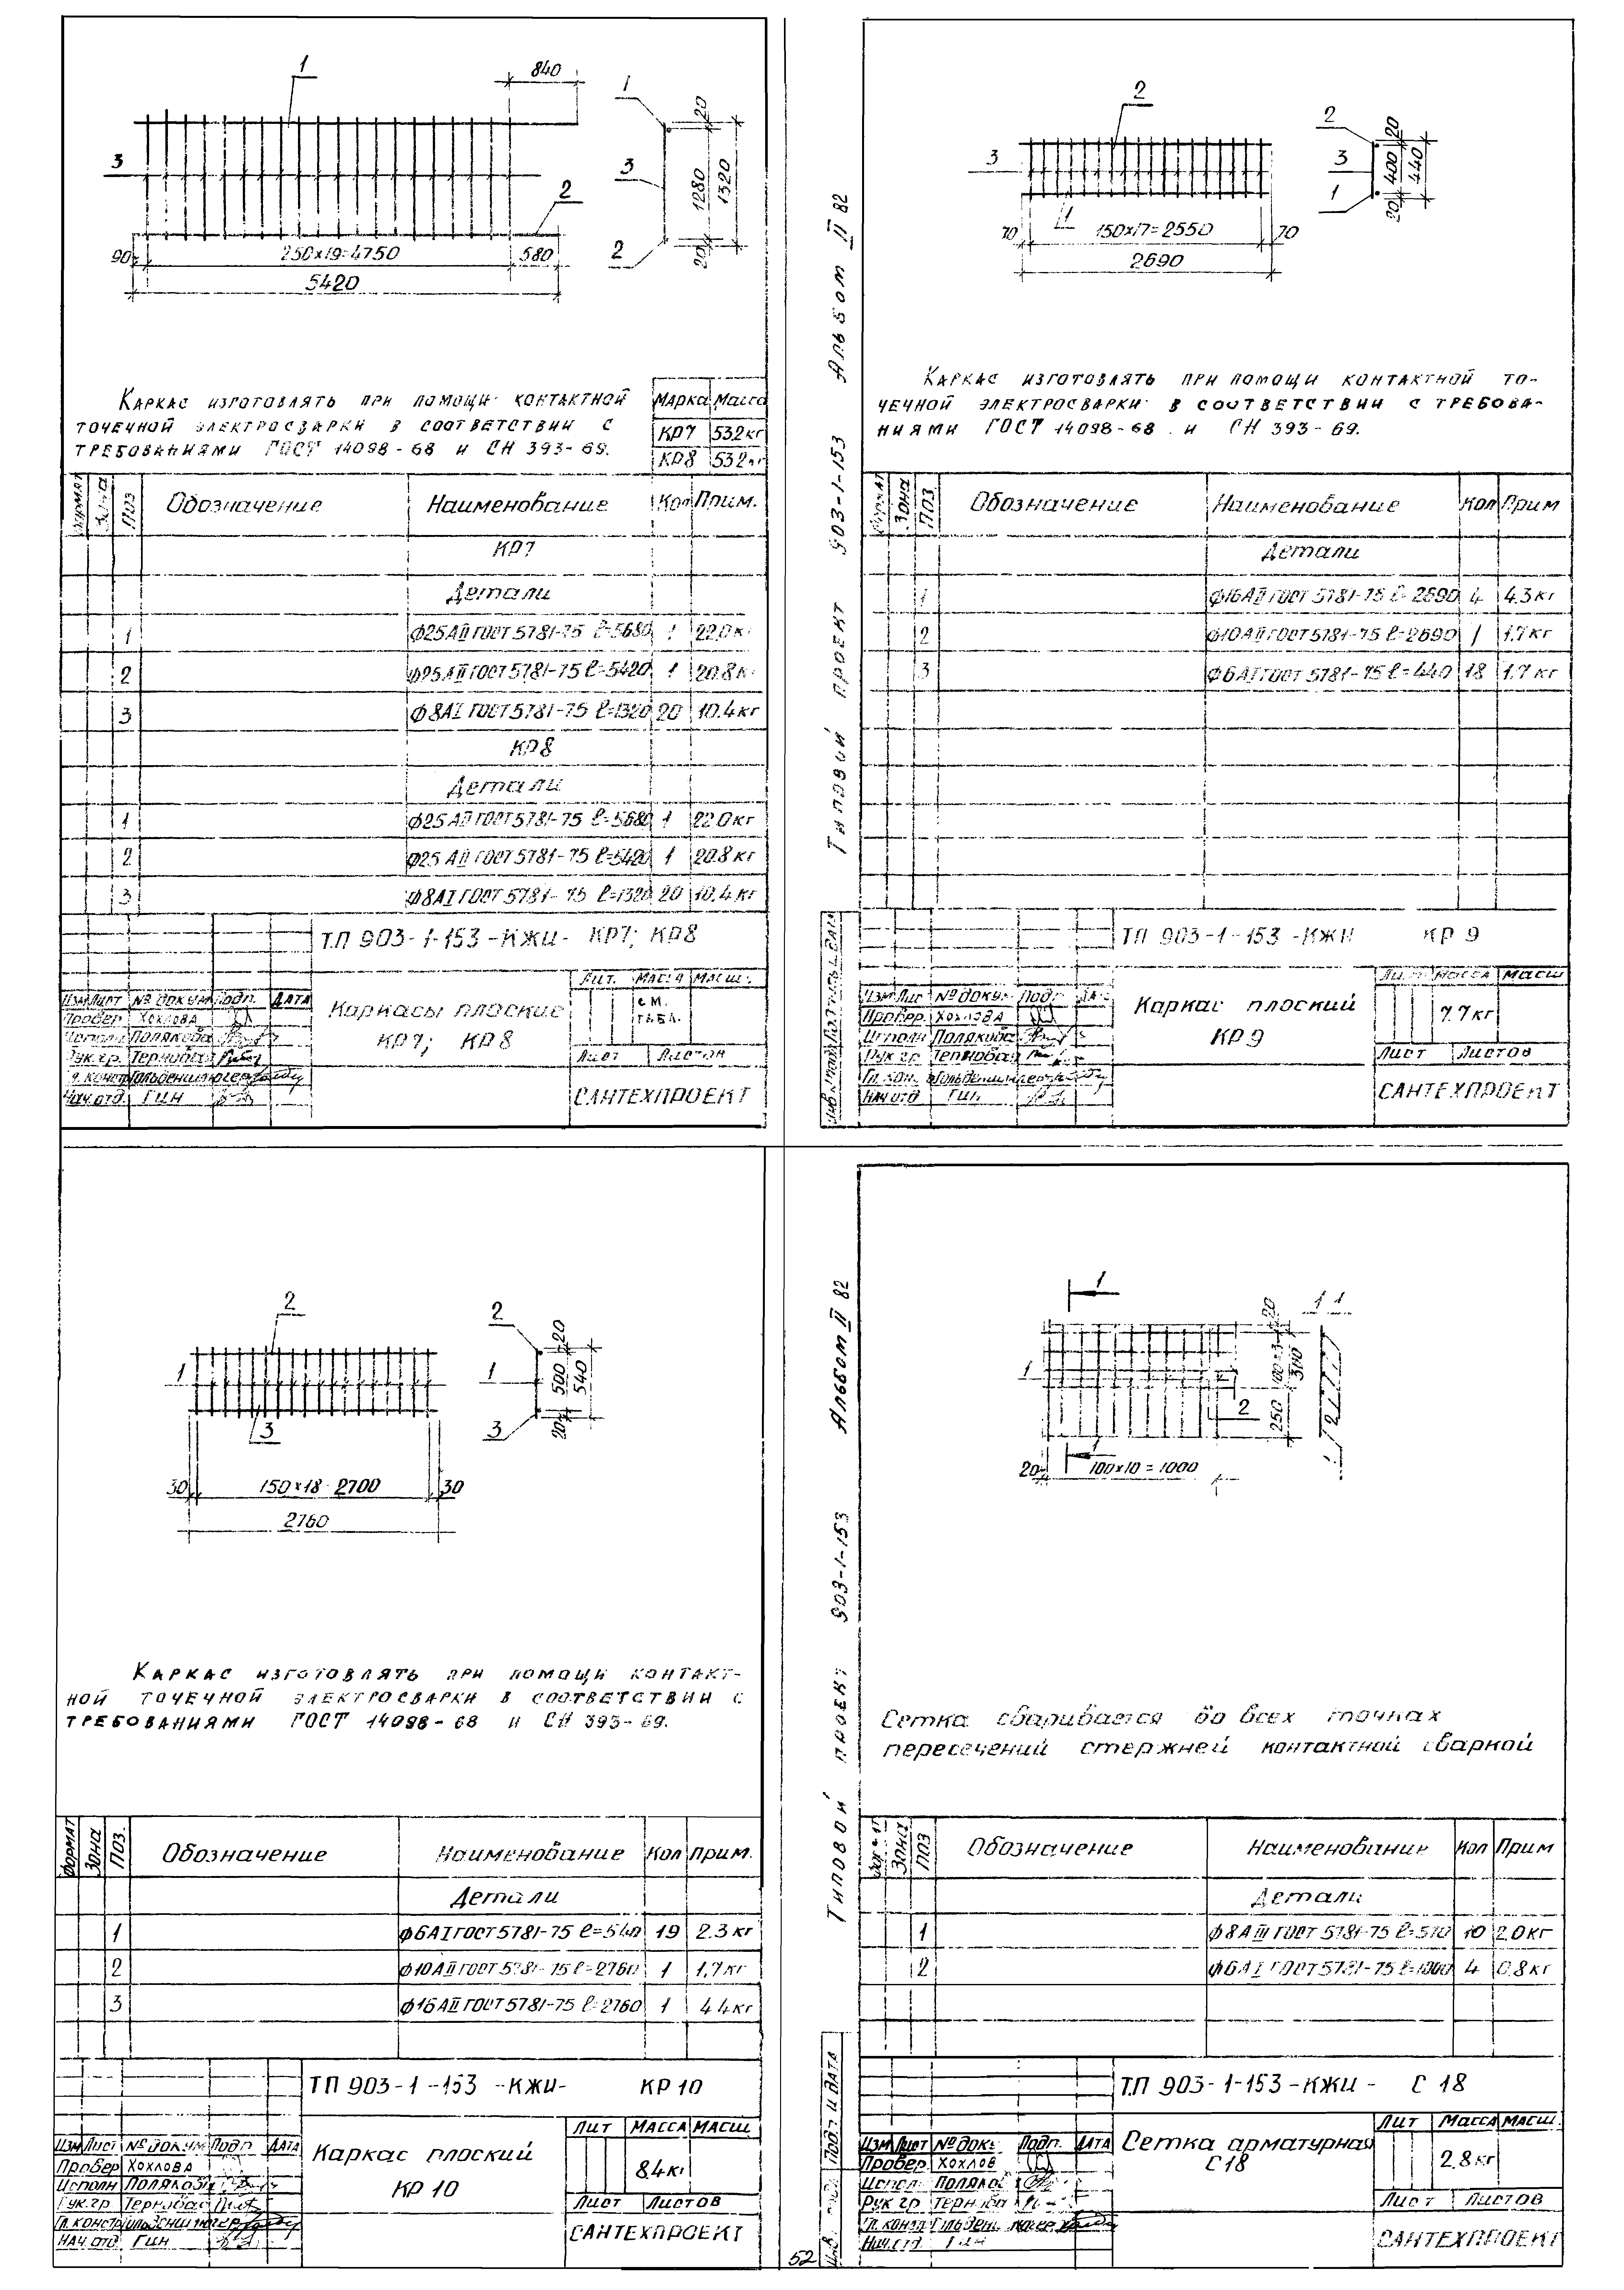 1
840
1
20
3
3
1280
1320
2
90
250х19=4750
580
2
20
5420
Каркас изготовлять при помощи контактной
точечной электросварки в соответствии с
требованиями ГОСТ 14098-68 и СН 393-69.
Марка Масса
КР7 53.2кг
КР8 53.2кг
Формат Зона Поз Обозначение Наименование Кол Прим.
КР7
Детали
1 Ф25АII ГОСТ 5781-75 ℓ=5680 1 22.0к
2 Ф25АII ГОСТ 5781-75 ℓ=5420 1 20.8к
3 Ф8АI ГОСТ 5781-75 ℓ=1320 20 10.4кг
КР8
Детали
1 Ф25АII ГОСТ 5781-75 ℓ=5680 1 22.0кг
2 Ф25АII ГОСТ 5781-75 ℓ=5420 1 20.8кг
3 Ф8АI ГОСТ 5781-75 ℓ=1320 20 10.4кг
ТП 903-1-153-КЖИ- КР7; КР8
Каркасы плоские
КР7; КР8
Лит. Масса Масш.
см.
табл.
Изм Лист № докум Подп. Дата
Провер Хохлова
Исполн Полякова
Рук.гр. Тернова
Нач.отд. Гин
Лист Листов
САНТЕХПРОЕКТ
Типовой проект 903-1-153 Альбом II 82
2
2
20
3
3
400
440
1
1
20
70
150х17=2550
70
2690
Каркас изготовлять при помощи контактной то-
чечной электросварки в соответствии с требова-
ниями ГОСТ 14098-68 и СН 393-69.
Формат Зона Поз Обозначение Наименование Кол Прим
Детали
1 Ф16АII ГОСТ 5781-75 ℓ=2690 4 4.3кг
2 Ф10АII ГОСТ 5781-75 ℓ=2690 1 1.7кг
3 Ф6АI ГОСТ 5781-75 ℓ=440 18 1.7кг
ТП 903-1-153-КЖИ КР 9
Каркас плоский
КР9
Лит. Масса Масш
7.7кг
Изм Лис № докум Подп Да
Провер. Хохлова
Исполн Полякова
Рук гр. Тернова
Нач отд Гин
Лист Листов
САНТЕХПРОЕКТ
2
2
20
1
1
500
540
3
3
20
30
150х18=2700
30
2760
Каркас изготовлять при помощи контакт-
ной точечной электросварки в соответствии с
требованиями ГОСТ 14098-68 и СН 393-69.
Формат Зона Поз. Обозначение Наименование Кол Прим.
Детали
1 Ф6АI ГОСТ 5781-75 ℓ=540 19 2.3кг
2 Ф10АII ГОСТ 5781-75 ℓ=2760 1 1.7кг
3 Ф16АII ГОСТ 5781-75 ℓ=2760 1 4.4кг
ТП 903-1-153-КЖИ- КР 10
Каркас плоский
КР 10
Лит Масса Масш
8.4кг
Изм Лист № докум Подп. Дата
Провер Хохлова
Исполн Полякова
Рук.гр Тернова
Нач.отд Гин
Лист Листов
САНТЕХПРОЕКТ
Типовой проект 903-1-153 Альбом II 82
1
1 1
20
1
2
250
20
1
100х10=1000
Сетка сваривается во всех точках
пересечений стержней контактной сваркой
Зона Поз Обозначение Наименование Кол Прим
Детали
1 Ф8АIII ГОСТ 5781-75 ℓ=570 10 2.0кг
2 Ф6АI ГОСТ 5781-75 4 0.8кг
ТП 903-1-153-КЖИ- С 18
Сетка арматурная
С18
Лит Масса Масш.
2.8кг
Изм Лист № док Подп. Дата
Провер Хохлов
Рук гр
Лист Листов
САНТЕХПРОЕКТ
Подп и дата
52